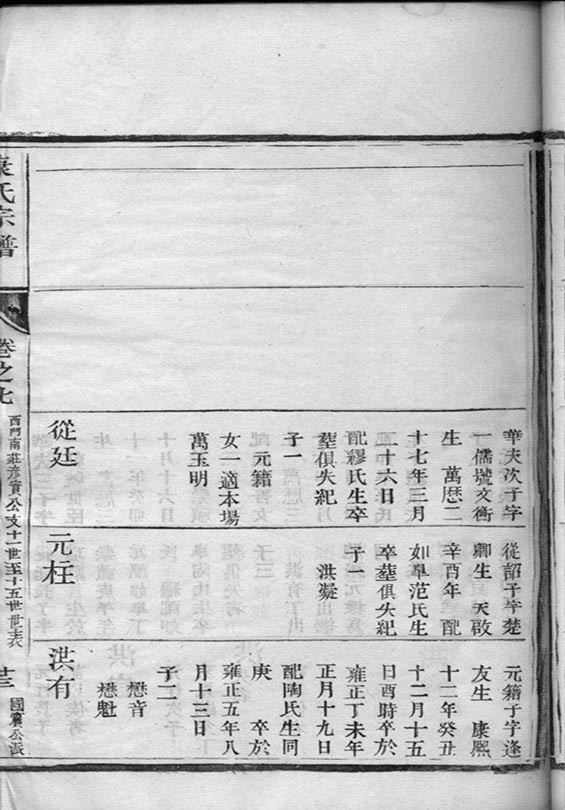 華夫次子字
一儒號文衡
生 萬歷二
十七年三月
二十六日
配繆氏生卒
塟俱失紀
子一
元籍
女一適本場
萬玉明
從廷
從韶子字楚
卿生 天啟
辛酉年 配
如皐范氏生
卒塟俱失紀
子
洪凝
元枉
元籍子字逢
友生 康熙
十二年癸丑
十二月十五
日酉時卒於
雍正丁未年
正月十九日
配陶氏生同
庚 卒於
雍正五年八
月十三日
子二
懋音
懋魁
洪有
氏宗譜
卷之七
西門南莊彥賓公支十一世至十五世世表
國賓公派